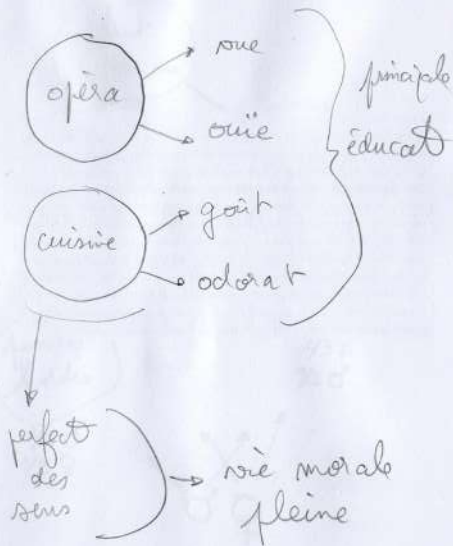 opèra
vue
ouïe
principale
éducat
cuisine
goût
odorat
perfect
des
sens
vie morale
pleine